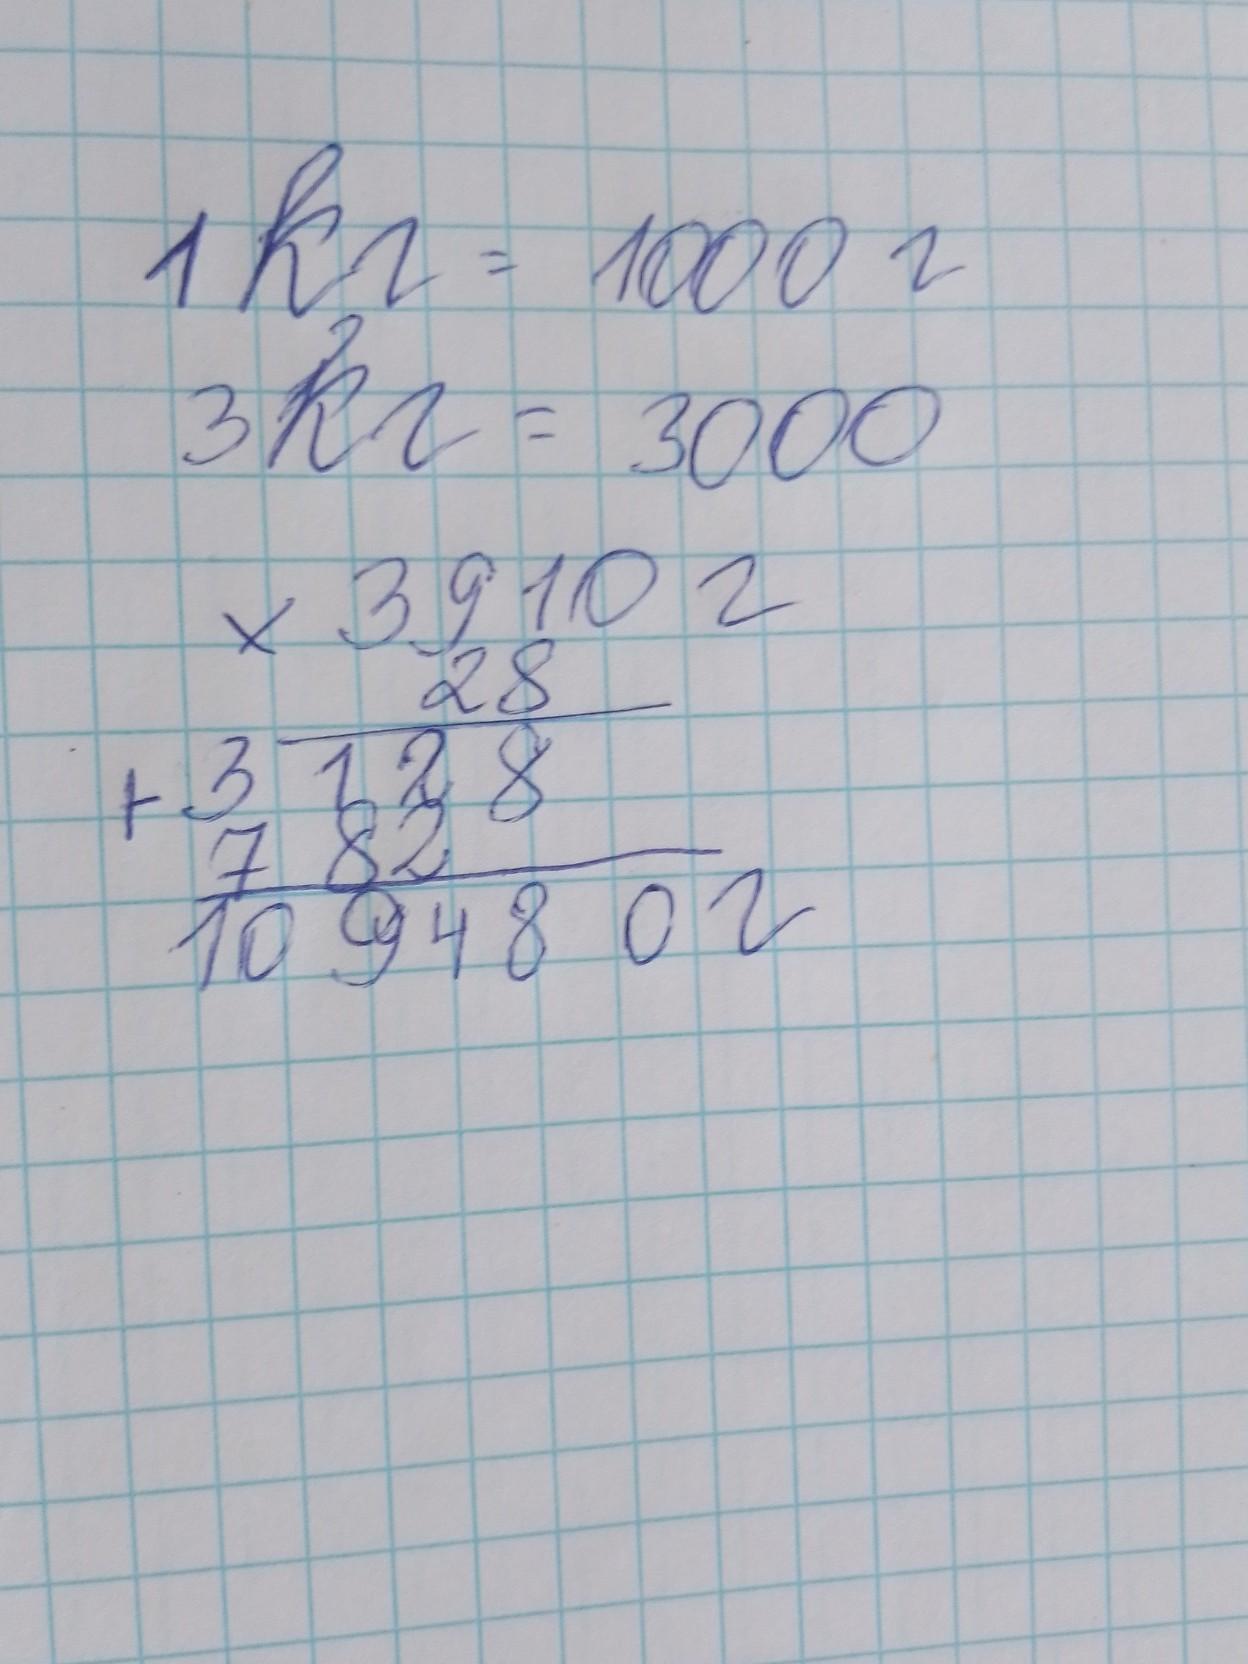 1 кг = 1000 г
3 кг = 3000
× 3910 г
28
+ 3128
782
109480 г